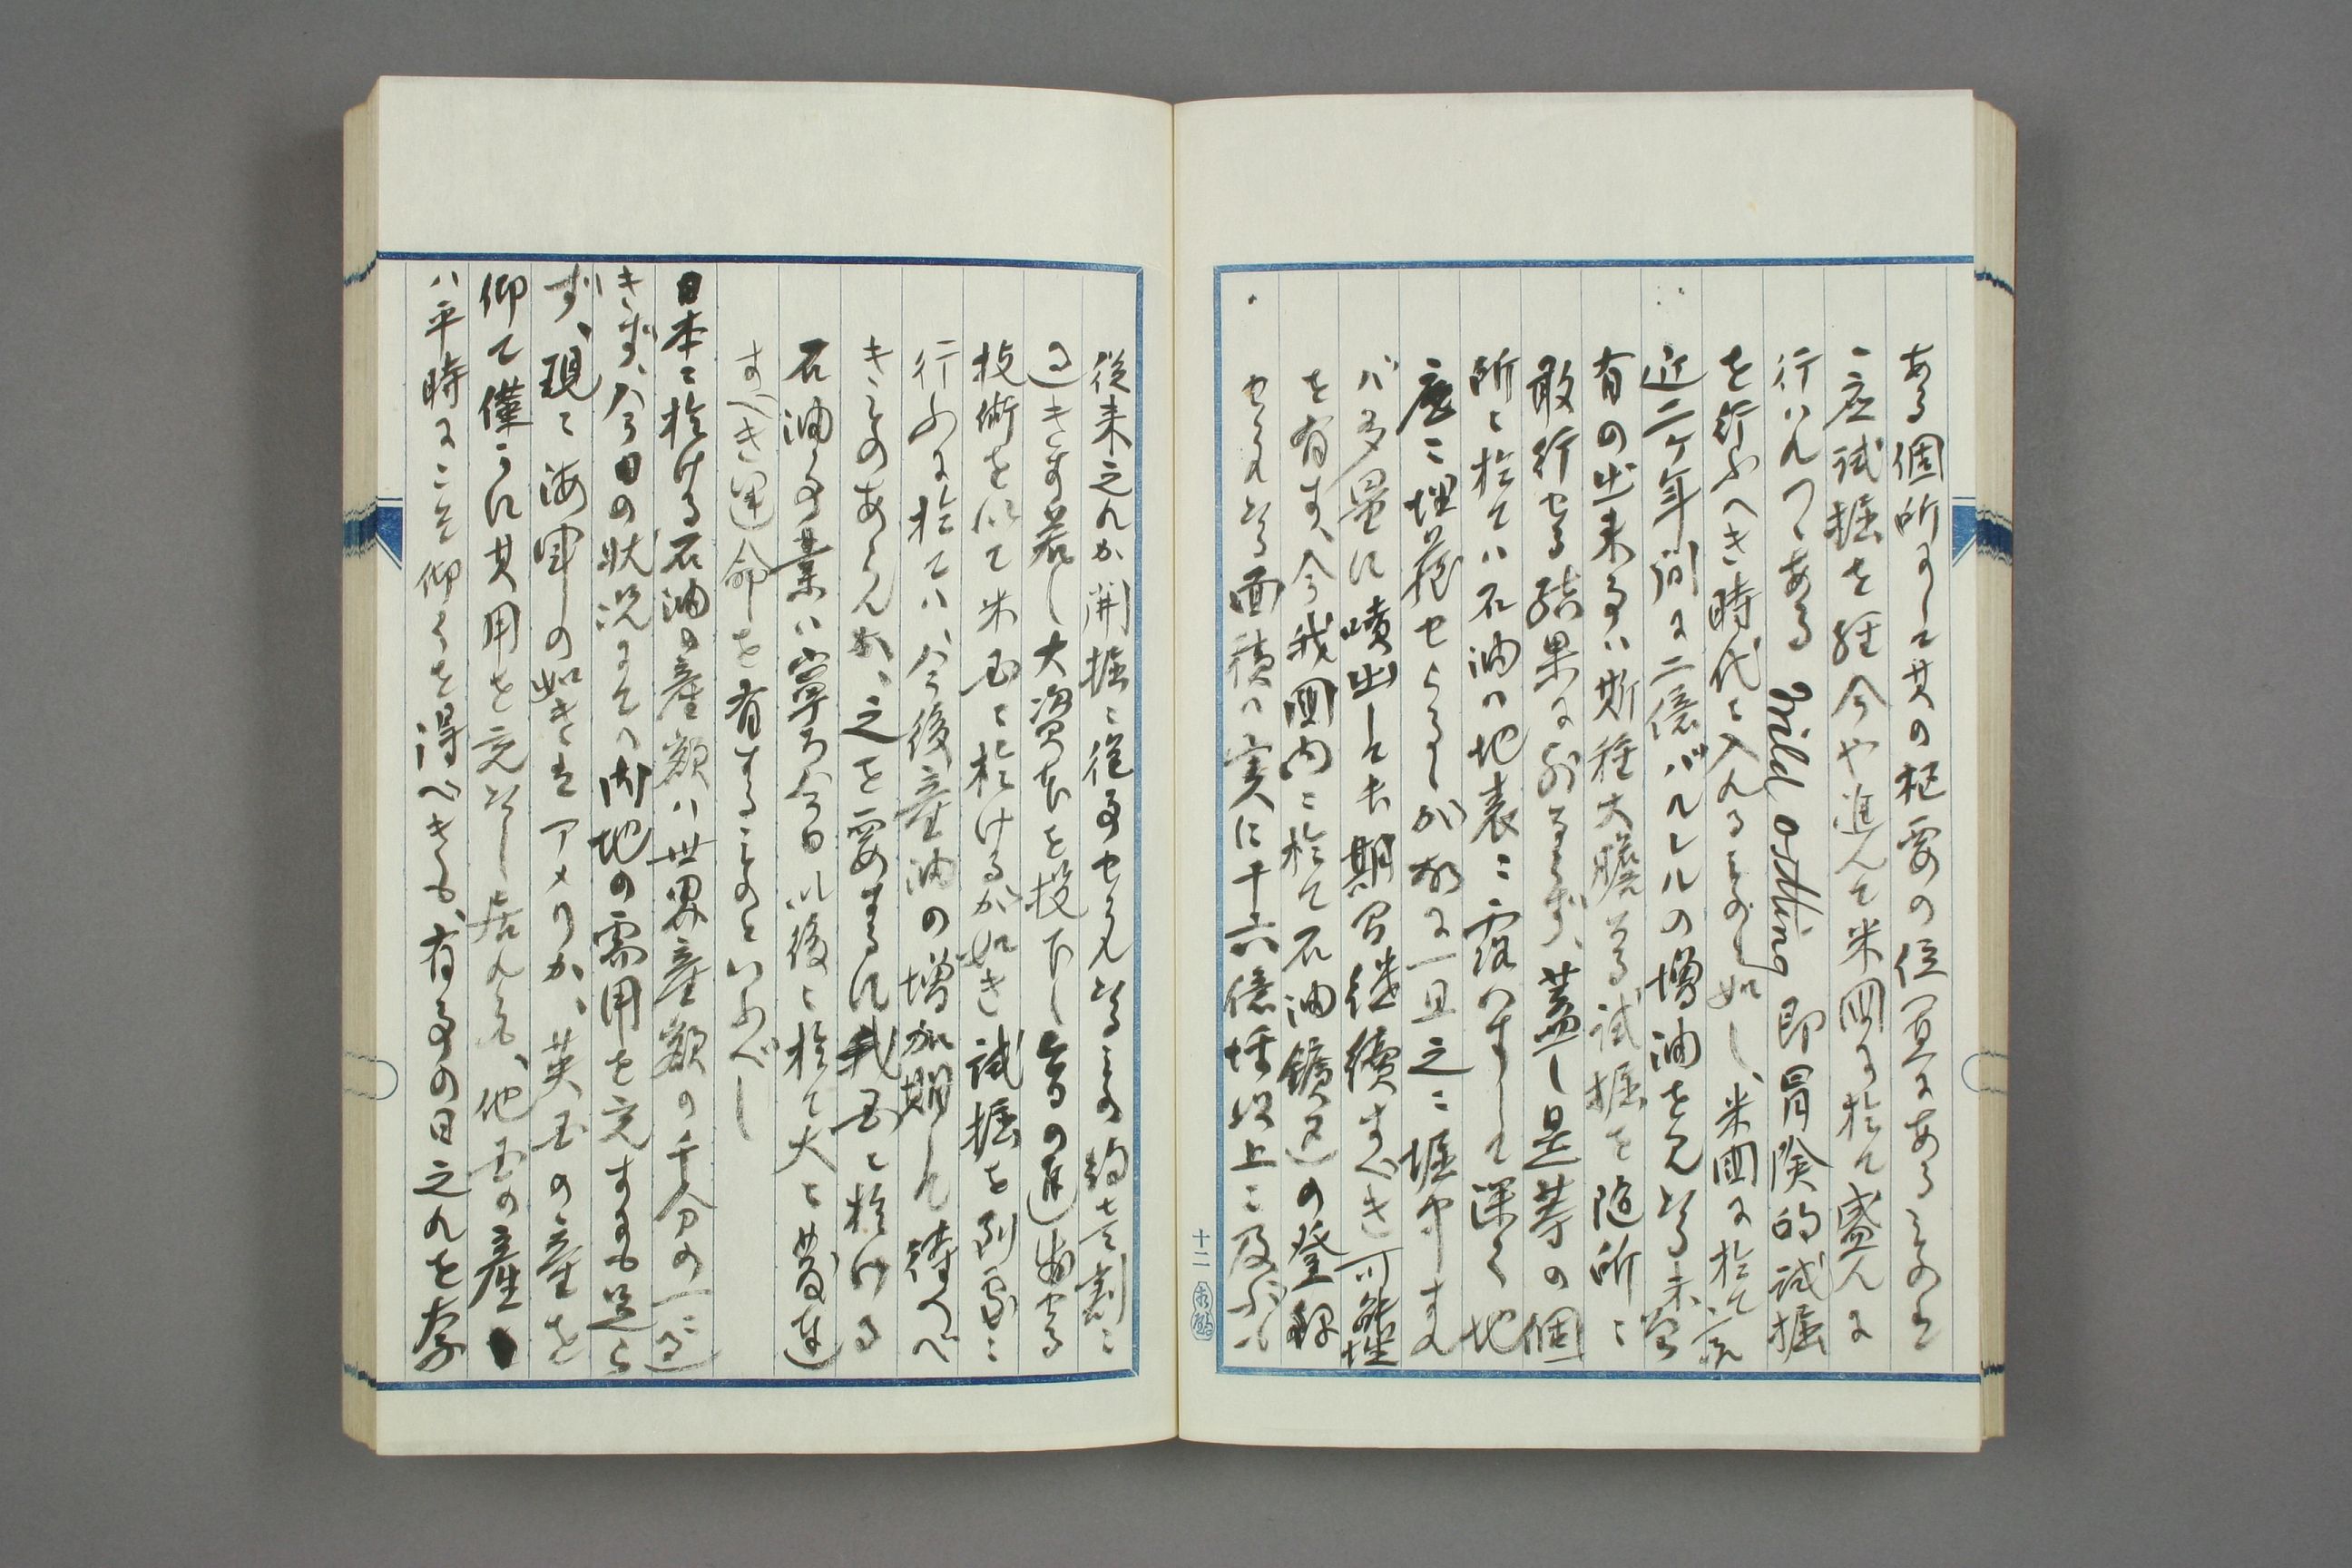 ある個所にして其の枢要の位置にあるものと
一応試掘を経今や進んで米国に於て盛んに
行ハれつゝある Wild 即冒険的試掘
を行ふへき時代に入れるものゝ如し、米国に於て最
近二ケ年間に二億バルレルの増油を見たる未曽
有の出来事ハ斯種大胆なる試掘を随所に
敢行せる結果に外ならず、蓋し是等の個
所に於てハ石油ハ地表に露ハすして深く地
底に埋蔵せらるゝか故に一旦之に堀中すれ
バ多量に噴出し長期間継続すべき可能性
を有す、今我国内に於て石油鑛区の登録
せられたる面積ハ実に十六億坪以上に及ぶも
十二
従来之れか開掘に従事せられたるもの約壱割に
過きす若し大資本を投下し昔の進歩せる
技術を以て米国に於けるか如き試掘を到処に
行ふに於てハ今後産油の増加期して待つべ
きものあらんか、之を要するに我国に於ける
石油事業ハ寧ろ今日以後に於て大に発達
すべき運命を有するものといふべし
日本に於ける石油の産額ハ世界産額の千分の一に過
きず、今日の状況にてハ内地の需用を充すにも足ら
ず、現に海軍の如きはアメリカ、英国の産を
仰て僅かに其用を充たし居れる、他国の産
ハ平時にこそ仰くを得べきも、有事の日之れを杏